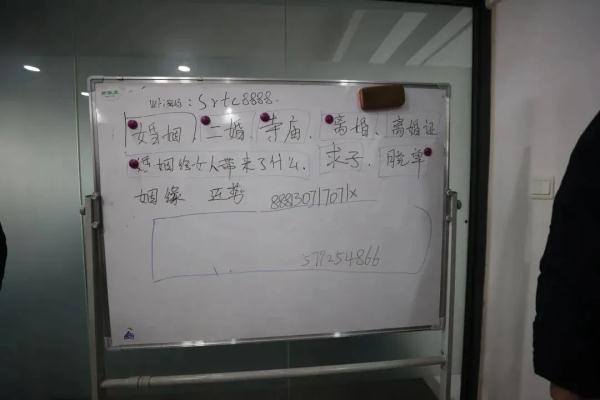 WiFi密码：Srtc8888.
婚姻、二婚、寺庙、离婚、离婚证
婚姻给女人带来了什么、求子、脱单
姻缘 888130717071x
579254866